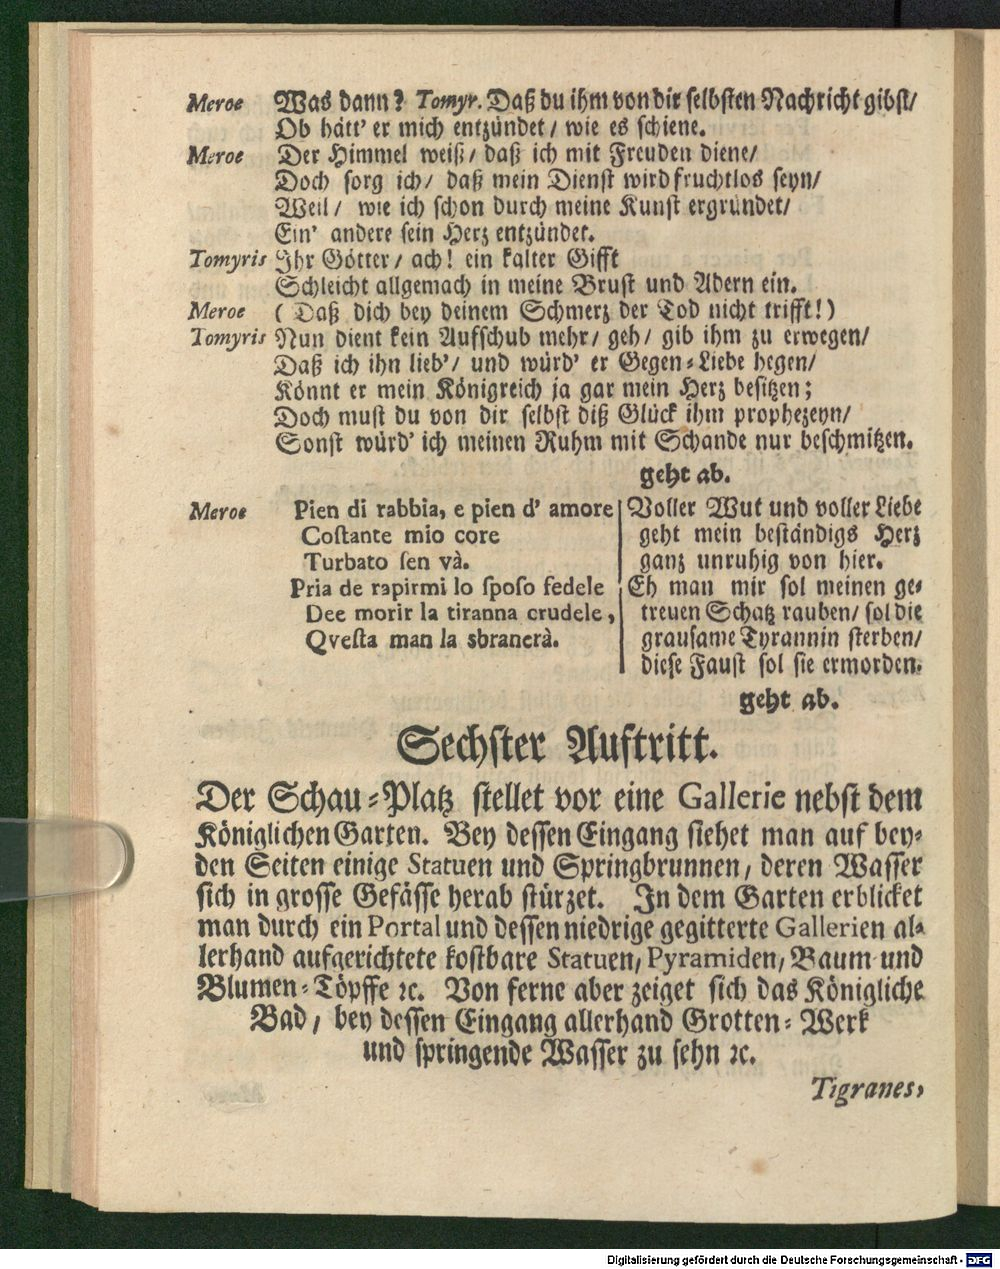 Meroe Was dann? Tomyr. Daß du ihm von dir selbsten Nachricht gibst/
Ob hätt' er mich entzündet/ wie es schiene.
Meroe Der Himmel weiß/ daß ich mit Freuden diene/
Doch sorg ich/ daß mein Dienst wird fruchtlos seyn/
Weil/ wie ich schon durch meine Kunst ergründet/
Ein' andere sein Herz entzündet.
Tomyris Ihr Götter/ ach! ein kalter Gifft
Schleicht allgemach in meine Brust und Adern ein.
Meroe ( Daß dich bey deinem Schmerz der Tod nicht trifft!)
Tomyris Nun dient kein Aufschub mehr/ geh/ gib ihm zu erwegen/
Daß ich ihn lieb'/ und würd' er Gegen-Liebe hegen/
Könnt er mein Königreich ja gar mein Herz besitzen;
Doch must du von dir selbst diß Glück ihm prophezeyn/
Sonst würd' ich meinen Ruhm mit Schande nur beschmitzen.
geht ab.
Meroe Pien di rabbia, e pien d' amore
Costante mio core
Turbato sen và.
Pria de rapirmi lo sposo fedele
Dee morir la tiranna crudele,
Qvesta man la sbranerà.
Voller Wut und voller Liebe
geht mein beständigs Herz
ganz unruhig von hier.
Eh man mir sol meinen ge-
treuen Schatz rauben/ sol die
grausame Tyrannin sterben/
diese Faust sol sie ermorden.
geht ab.
Sechster Auftritt.
Der Schau-Platz stellet vor eine Gallerie nebst dem
Königlichen Garten. Bey dessen Eingang siehet man auf bey-
den Seiten einige Statuen und Springbrunnen, deren Wasser
sich in grosse Gefässe herab stürzet. In dem Garten erblicket
man durch ein Portal und dessen niedrige gegitterte Gallerien al-
lerhand aufgerichtete kostbare Statuen, Pyramiden, Baum- und
Blumen-Töpffe ꝛc. Von ferne aber zeiget sich das Königliche
Bad, bey dessen Eingang allerhand Grotten-Werk
und springende Wasser zu sehn ꝛc.
Tigranes,
Digitalisierung gefördert durch die Deutsche Forschungsgemeinschaft - DFG